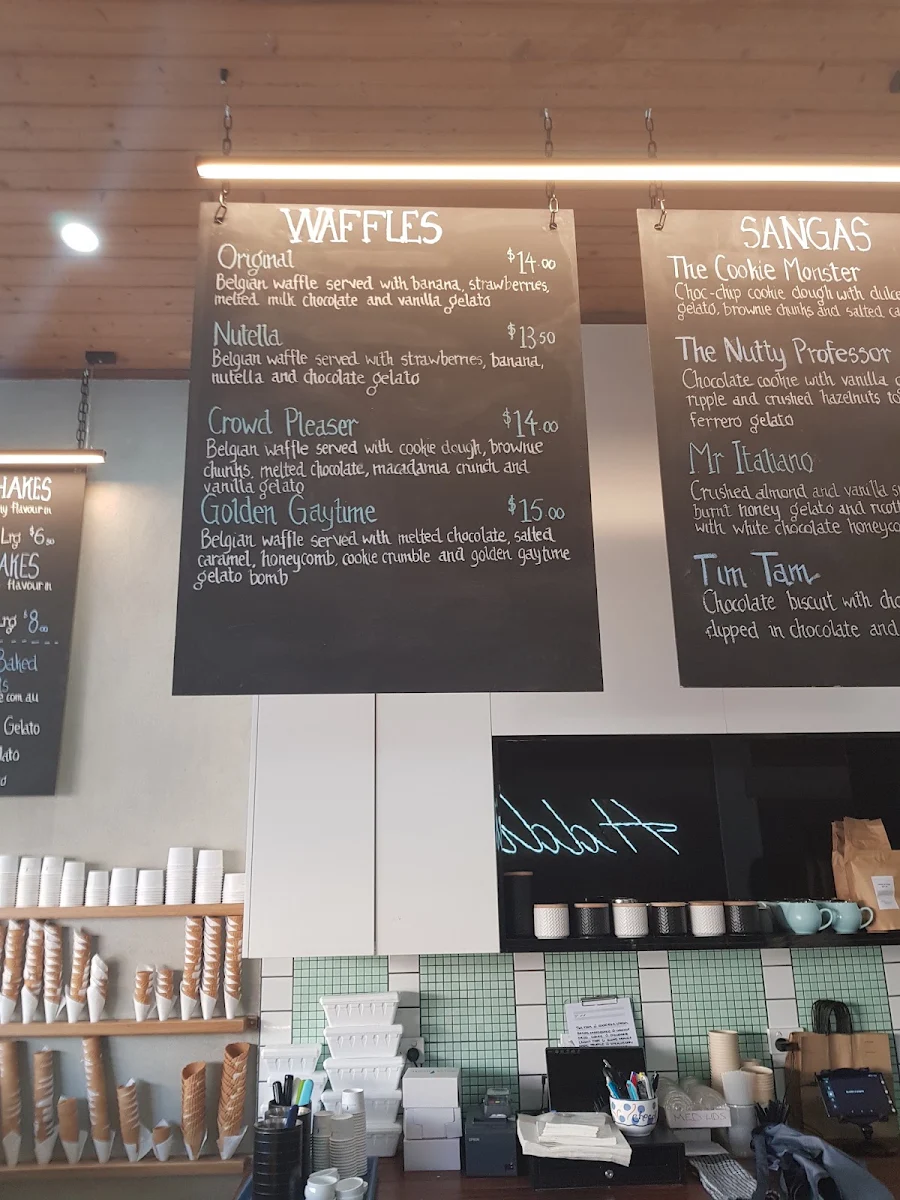 WAFFLES
Original $14.00
Belgian waffle served with banana, strawberries,
melted milk chocolate and vanilla gelato
Nutella $13.50
Belgian waffle served with strawberries, banana,
nutella and chocolate gelato
Crowd Pleaser $14.00
Belgian waffle served with cookie dough, brownie
chunks, melted chocolate, macadamia crunch and
vanilla gelato
Golden Gaytime $15.00
Belgian waffle served with melted chocolate, salted
caramel, honeycomb, cookie crumble and golden gaytime
gelato bomb
SANGAS
The Cookie Monster
Choc-chip cookie dough with dulce
gelato, brownie chunks and salted ca
The Nutty Professor
Chocolate cookie with vanilla
ripple and crushed hazelnuts to
ferrero gelato
Mr Italiano
Crushed almond and vanilla
burnt honey gelato and ricot
with white chocolate honeyco
Tim Tam
Chocolate biscuit with cho
flipped in chocolate and
HAKES
y flavour
Lrg $6.50
AKES
flavour
rg $8.00
Baked
ls
e.com.au
Gelato
lato
Hadd
MED LIDS